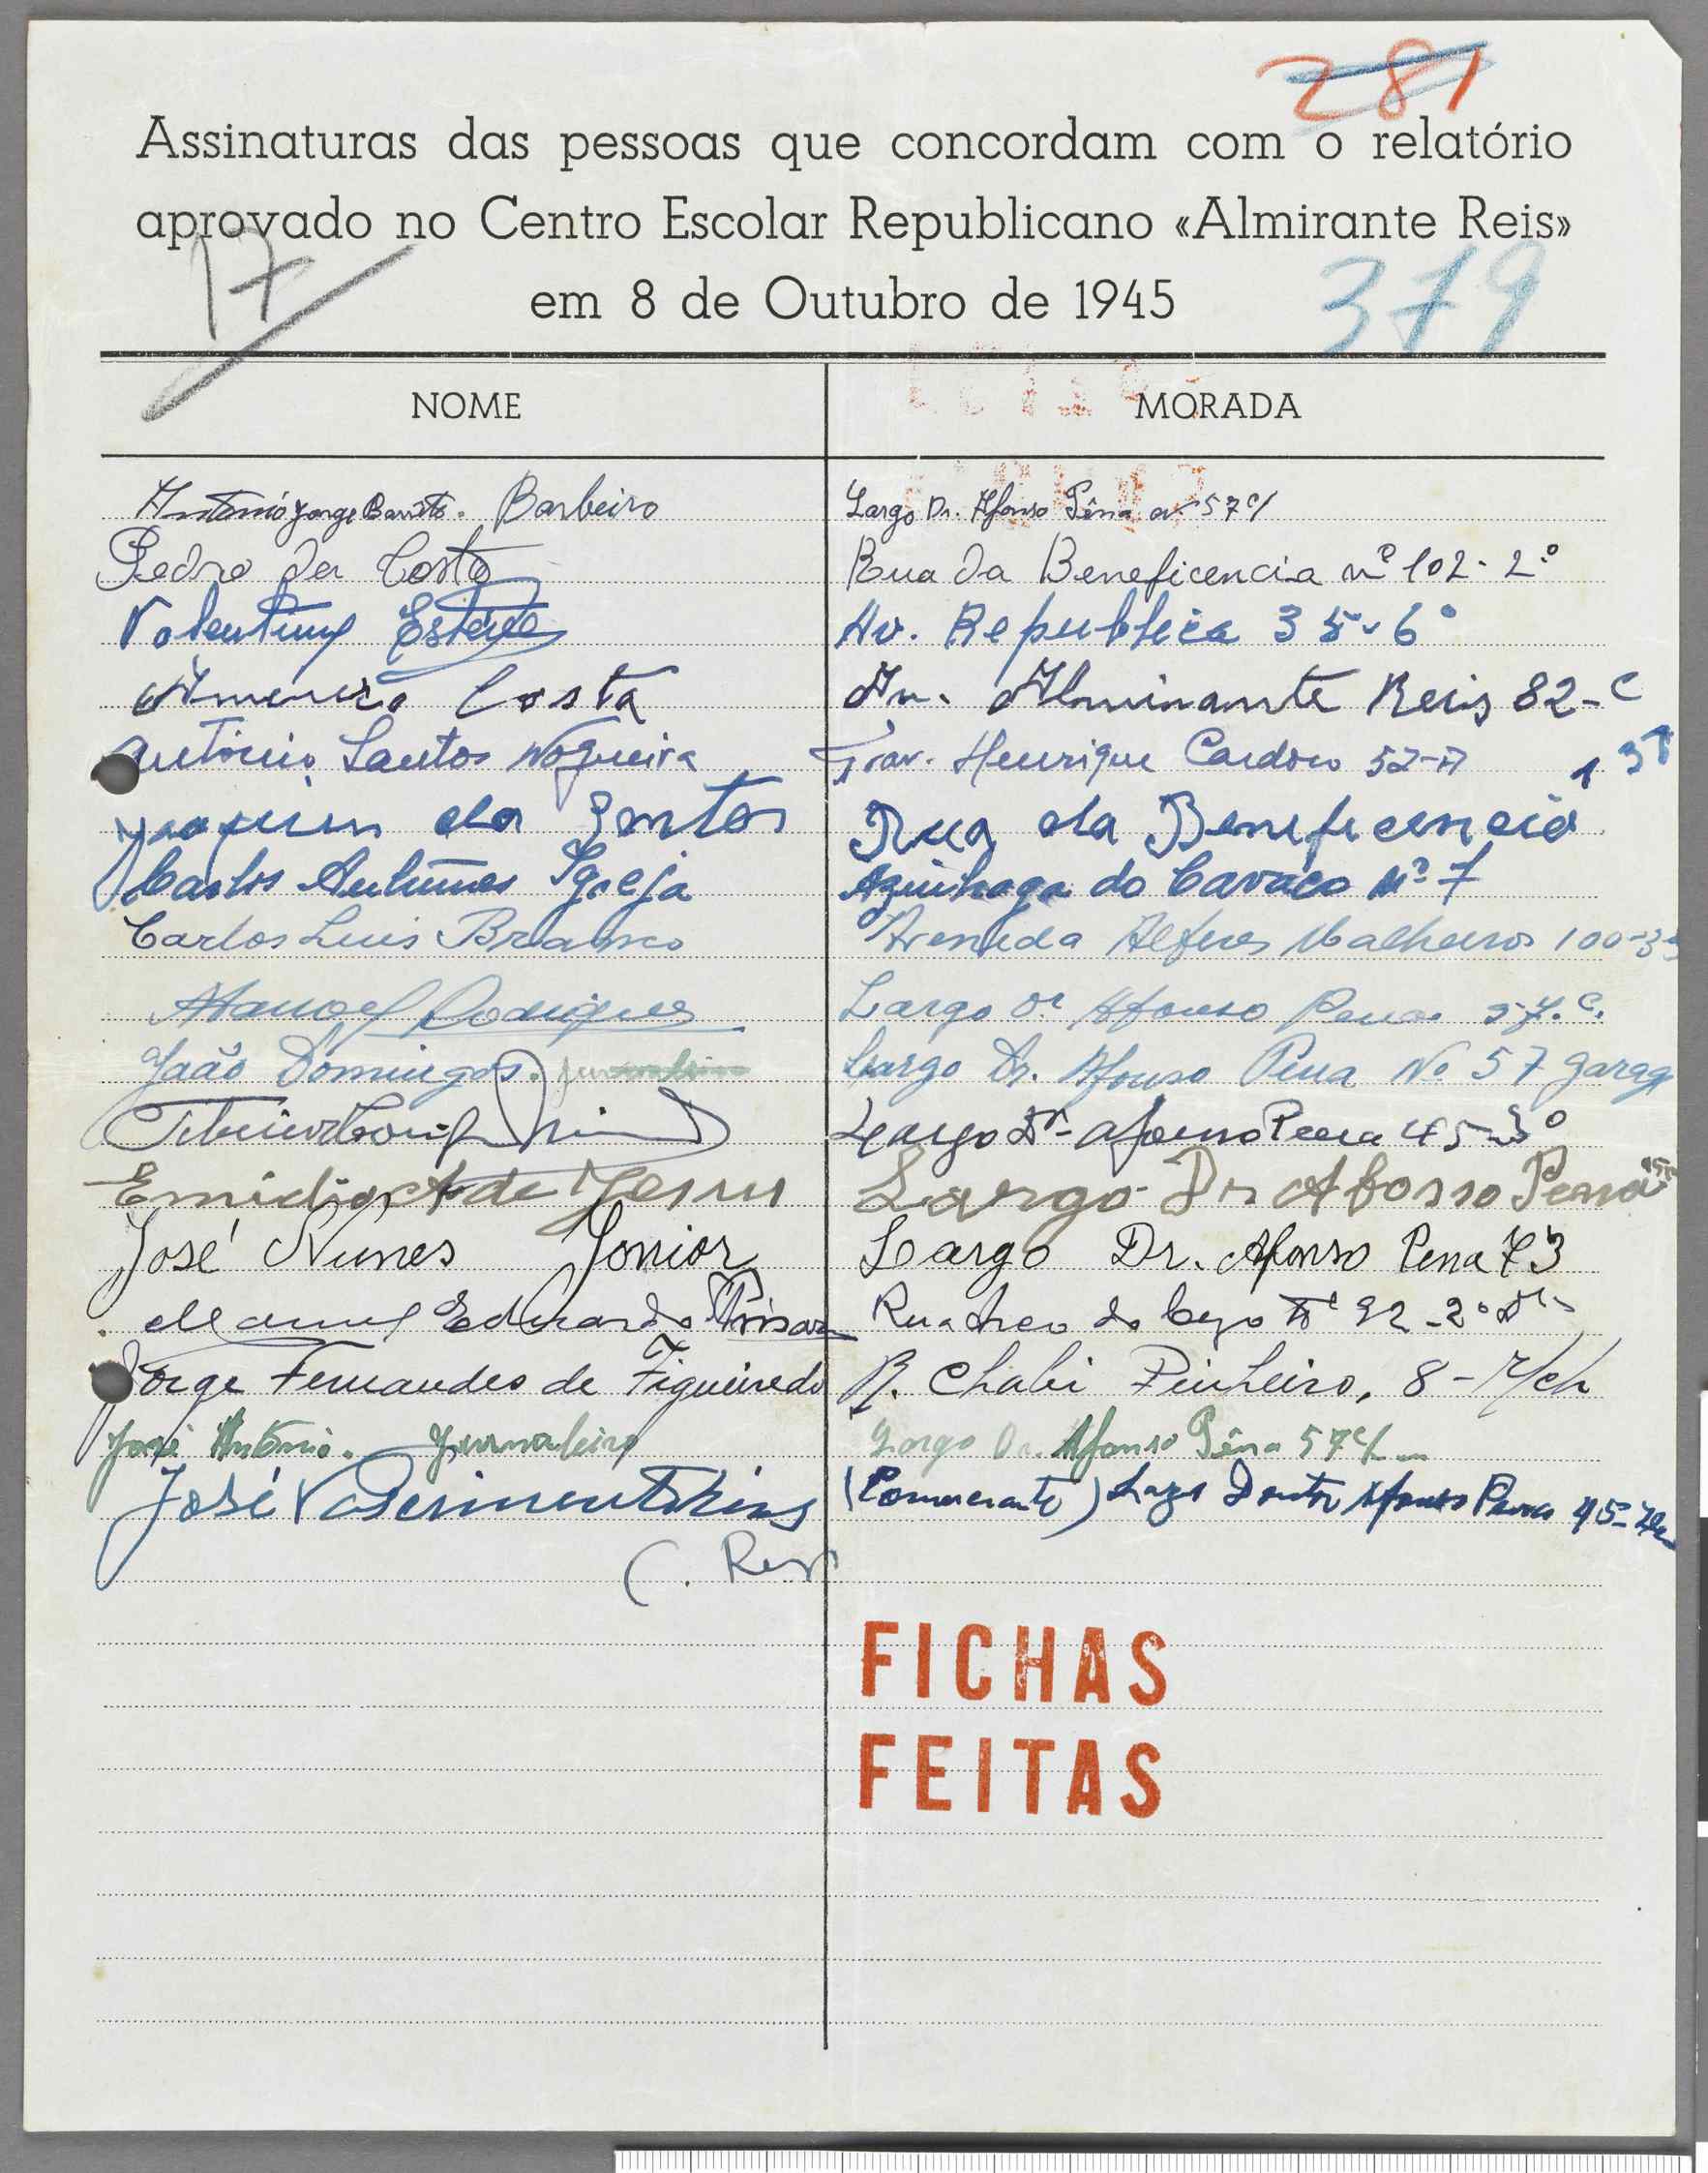 281
Assinaturas das pessoas que concordam com o relatório
aprovado no Centro Escolar Republicano «Almirante Reis»
em 8 de Outubro de 1945
17
379
NOME MORADA
António Jorge Barreto. Barbeiro Largo Dr. Afonso Pêna nº 57 c/
Pedro da Costa Rua da Beneficencia nº 102-2º
Valentim Esteve Av. Republica 35-6º
Costa Av. Almirante Reis 82-C
António Santos Nogueira Trav. Henrique Cardoso 52-A
Joaquim dos Santos Rua da Beneficencia
Carlos Antunes Igreja Azinhaga do Cavaco Nº 7
Carlos Luis Branco Avenida Alferes Malheiro 100-3
Manoel Rodrigues Largo Dr Afonso Pena 57. C.
João Domingos. Largo Dr. Afonso Pena No 57 garag
Largo Dr Afonso Pena 45-3º
Emidio A de Jesus Largo Dr Afosso Pena
José Nunes Junior Largo Dr. Afonso Pena 73
Manuel Eduardo Rua Arco do Cego Nº 92-2º Dto
Jorge Fernandes de Figueiredo R. Chabi Pinheiro, 8-r/ch
José António. Jurnaleiro Largo Dr. Afonso Pêna 57 c/
José (Comerciante) Largo Doutor Afonso Pena 45
FICHAS
FEITAS